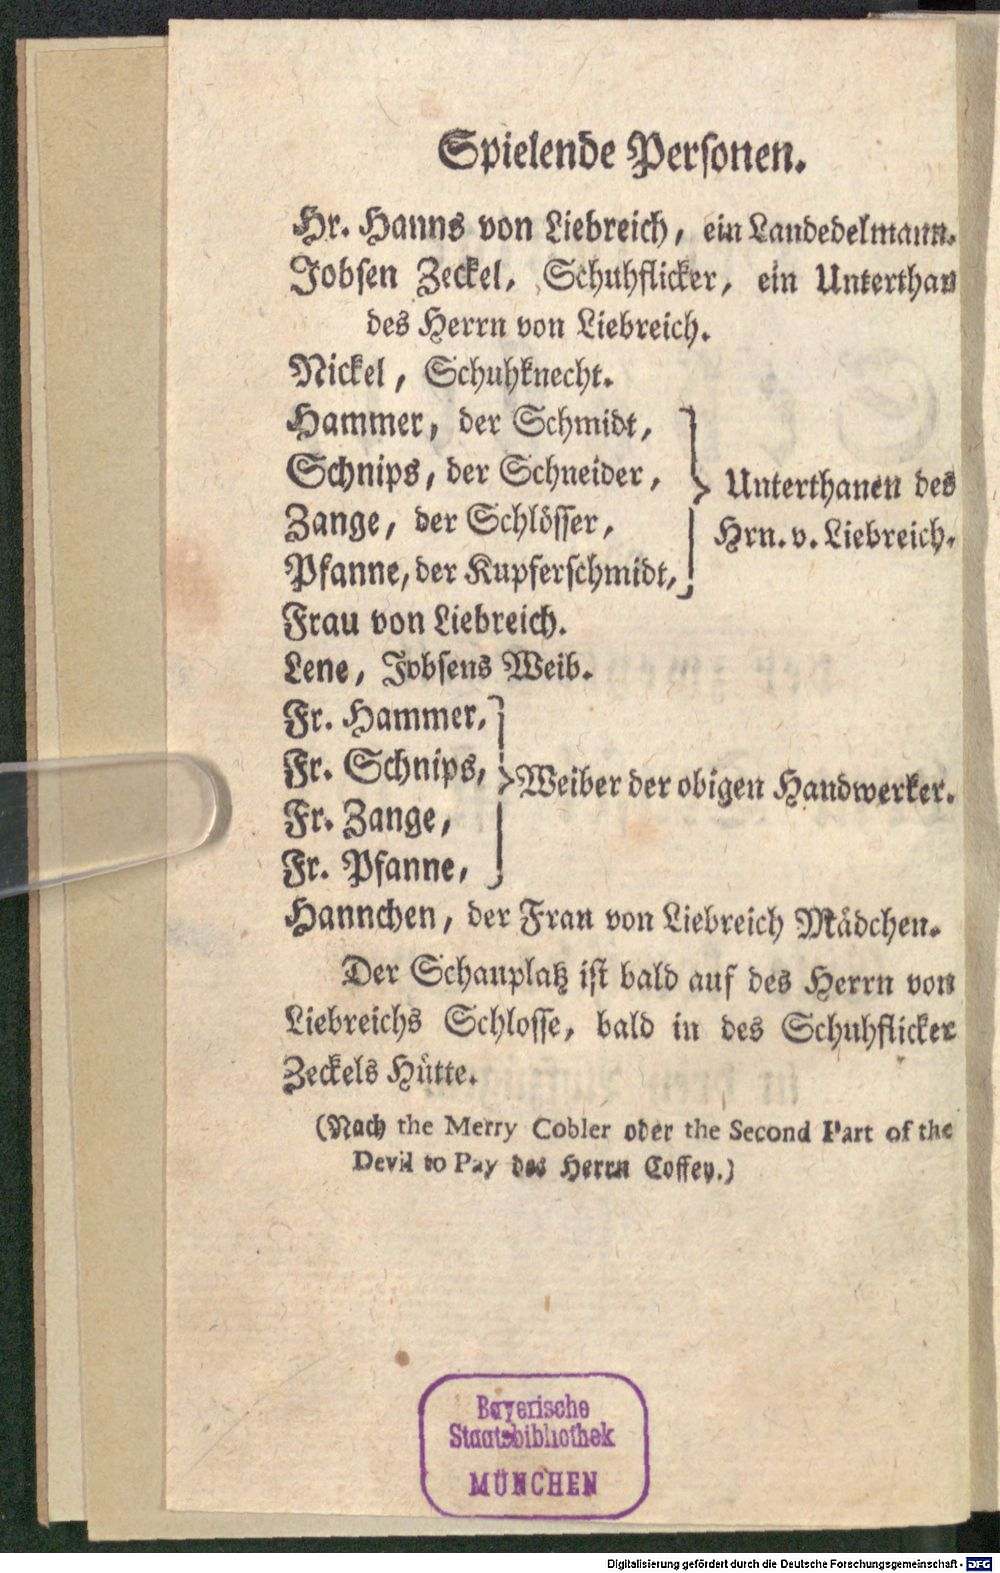 Spielende Personen.
Hr. Hanns von Liebreich, ein Landedelmann.
Jobsen Zeckel, Schuhflicker, ein Unterthan
des Herrn von Liebreich.
Nickel, Schuhknecht.
Hammer, der Schmidt,
Schnips, der Schneider,
Zange, der Schlösser,
Pfanne, der Kupferschmidt,
Unterthanen des
Hrn. v. Liebreich.
Frau von Liebreich.
Lene, Jobsens Weib.
Fr. Hammer,
Fr. Schnips,
Fr. Zange,
Fr. Pfanne,
Weiber der obigen Handwerker.
Hannchen, der Frau von Liebreich Mädchen.
Der Schauplatz ist bald auf des Herrn von
Liebreichs Schlosse, bald in des Schuhflicker
Zeckels Hütte.
(Nach the Merry Cobler oder the Second Part of the
Devil to Pay des Herrn Coffey.)
Bayerische
Staatsbibliothek
MÜNCHEN
Digitalisierung gefördert durch die Deutsche Forschungsgemeinschaft - DFG